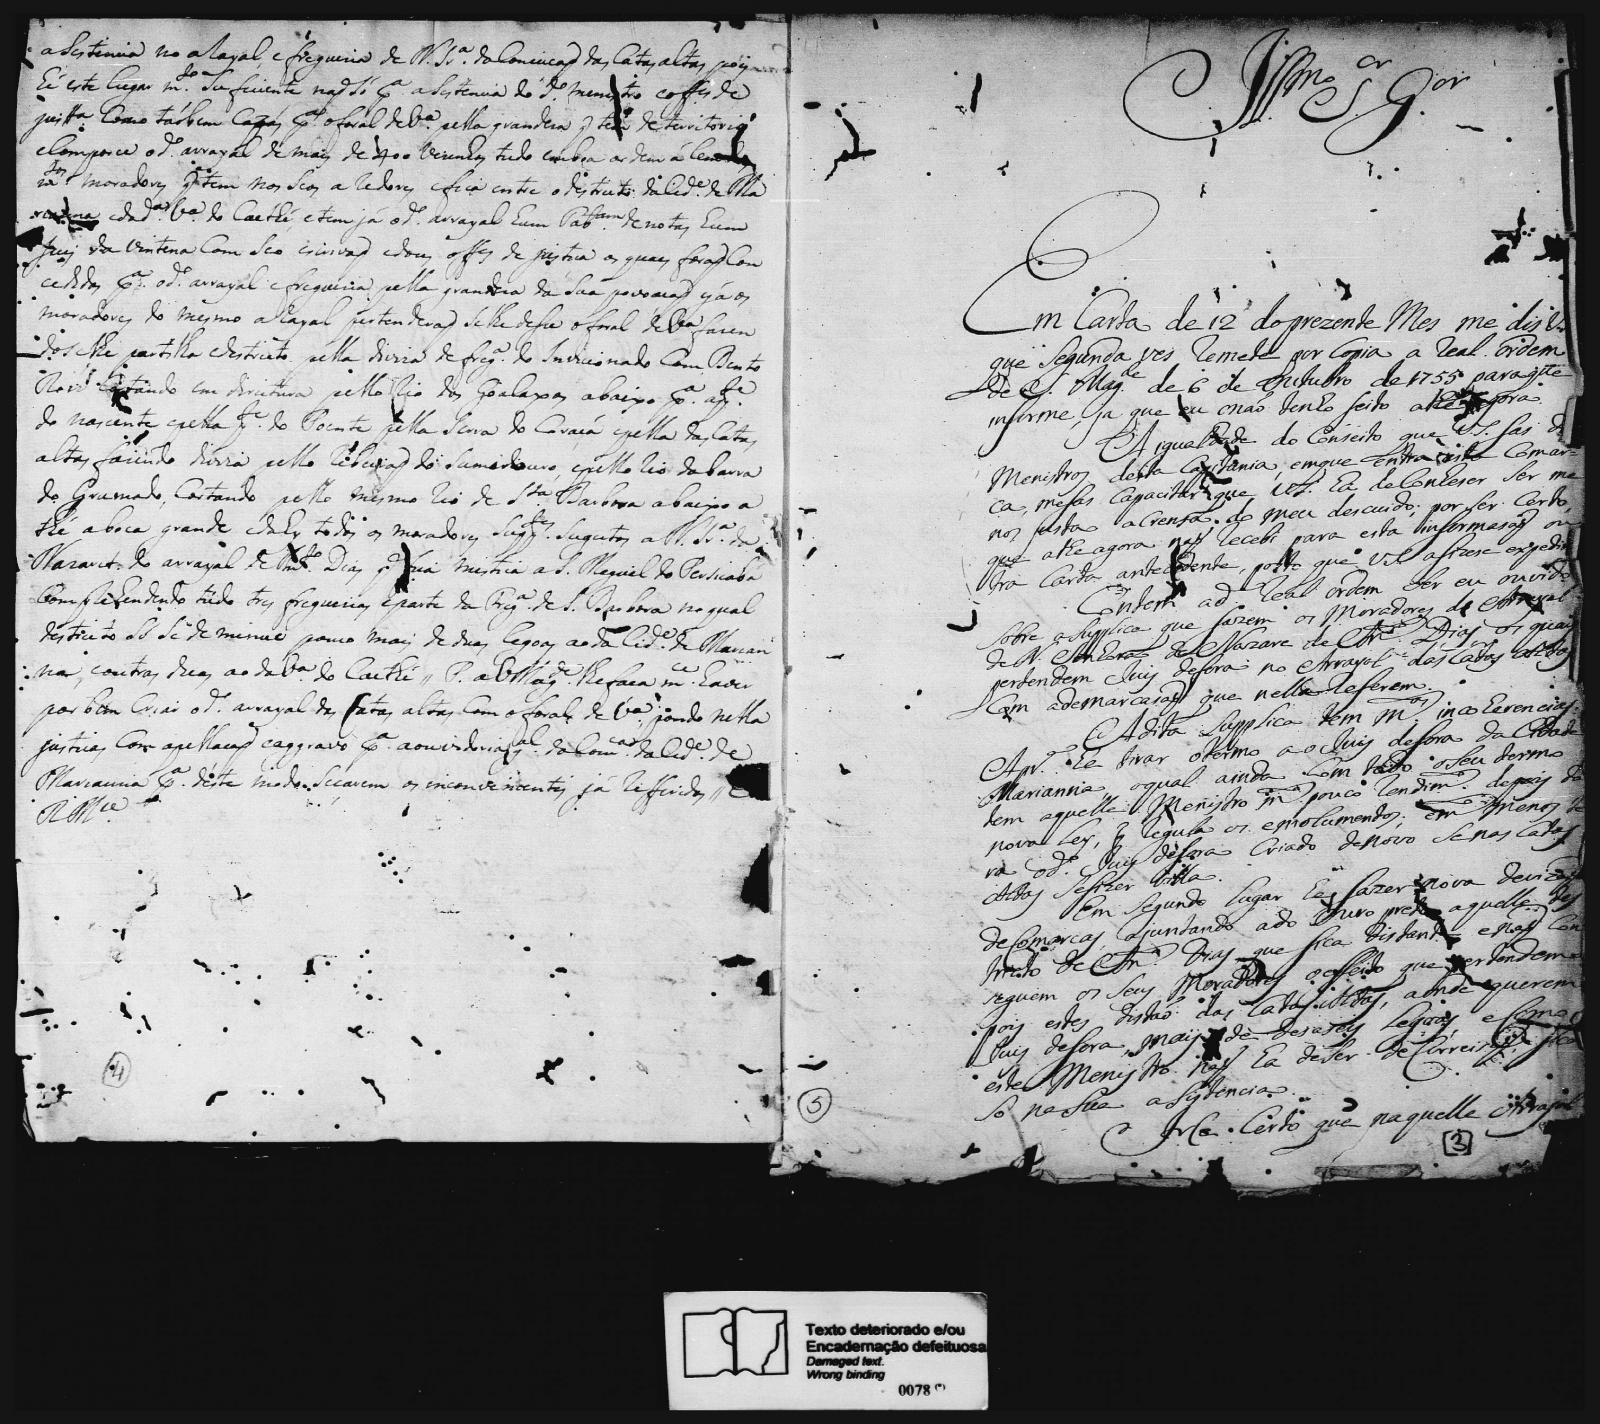 asistencia no aRayal, e freguezia de N. Sra. da Conceicaõ das Catas altas pois
hé este Lugar mto. Suficiente naõ Só pa. asistencia do do. menistro e offes. de
justa. Como táobem Capas pa. o foral de Va. pella grandeza q tem de territorio
e Comporce o do. arrayal de mais de 400 vezinhos tudo em boa ordem
moradores q tem nos Seos a Redores e fica entre o destrito da Cide. de Ma
rianna e da da. Va. do Caethé, e tem já o do. arrayal hum Tabam. de notas hum
Juis da vintena Com Seo escrivaõ e dous offes. de justica os quais foraõ Con
cedidos pa. o do. arrayal e freguezia pella grandeza da Sua povoacaõ e já os
moradores do mesmo aRayal pertenderaõ Selhe dese o foral de Va. fazen
doselhe partilha e destrito pella diviza de frega. do Inficionado Com Bento
Roiz Cortando em direitura pello Rio dos Goalaxos abaixo pa. a pte.
do nascente e pella pte. do Poente pella Serra do Caraçá e pella das Catas
altas fazendo diviza pello Ribeiraõ do Sumidouro, e pello Rio da barra
do Gramado, Cortando pello mesmo Rio de Sta. Barbora abaixo a
thé aboca grande e dahy todos os moradores Sugeitos a N. Sra. de
Nazaret do arrayal de Anto. Dias pa. S. Miguel do Persicaba
Comprehendendo tudo tres freguezias e parte da Frega. de S. Barbora no qual
destrito Se de minue pouco mais de duas legoas ao da Cide. de Marian
na, e outras duas ao da Va. do Caethé // P. a V Mage. lhe faca mce. haver
por bem Criar o do. arrayal das Catas altas Com o foral de Va. pondo nella
justicas Com apellacaõ e aggravo pa. a ouvidoria gal. da Comca. da Cide. de
Marianna pa. deste modo Secarem os inconvinientes já Refferidos // E
R Mce.
4
Illmo. Sor. Gor.
Em Carta de 12 do prezente Mes me dis V.
que Segunda ves Remete por Copia a Real ordem
de S. Magde. de 6 de Outubro de 1755 para que
informe, ja que eu o naõ tenho feito athe agora.
A igualdade do Conseito que V.S. fas dos
Menistros desta Capitania, em que entra esta Comar=
ca, me fas Capacitar que V.S. ha de Conheser Ser me
nos justa a Crensa do meu descuido; por Ser Certo,
que athe agora naõ Recebi para esta informasaõ ou
tra Carta antecedente, posto que V.S. a fizese expedir.
Contem a da. Real ordem Ser eu ouvido
Sobre a Supplica que fazem os Moradores do Arrayal
de N. Senhora de Nazare de Anto. Dias os quais
pertendem Juis de fora no Arrayal das Catas altas
Com a demarcasaõ que nella Referem.
A dita Supplica tem mtas. incoherencias.
A pra. he tirar o termo ao Juis de fora da Cidade
Marianna, o qual ainda Com todo o Seu termo
tem aquelle Menistro mto. pouco Rendimto. depois da
nova Ley, q Regula os emolumentos; e mto. menos te
ra o do. Juis de fora Criado de novo Se nas Catas
Altas Sefizer Villa.
Em Segundo lugar he fazer nova devizaõ
de Comarcas, ajuntando a do Ouro preto aquelle des
tricto de Anto. Dias que fica distante e naõ Con
seguem os Seus Moradores o effeito que pertendem
pois estes distaõ das Catas Altas, aonde querem
Juis de fora, mais de desaseis Legoas, e Como
este Menistro naõ ha de Ser de Correisaõ, fica
So na Sua asistencia.
He Certo que naquelle Arrayal
5
3
Texto deteriorado e/ou
Encadernação defeituosa
Damaged text.
Wrong binding
0078 (*)